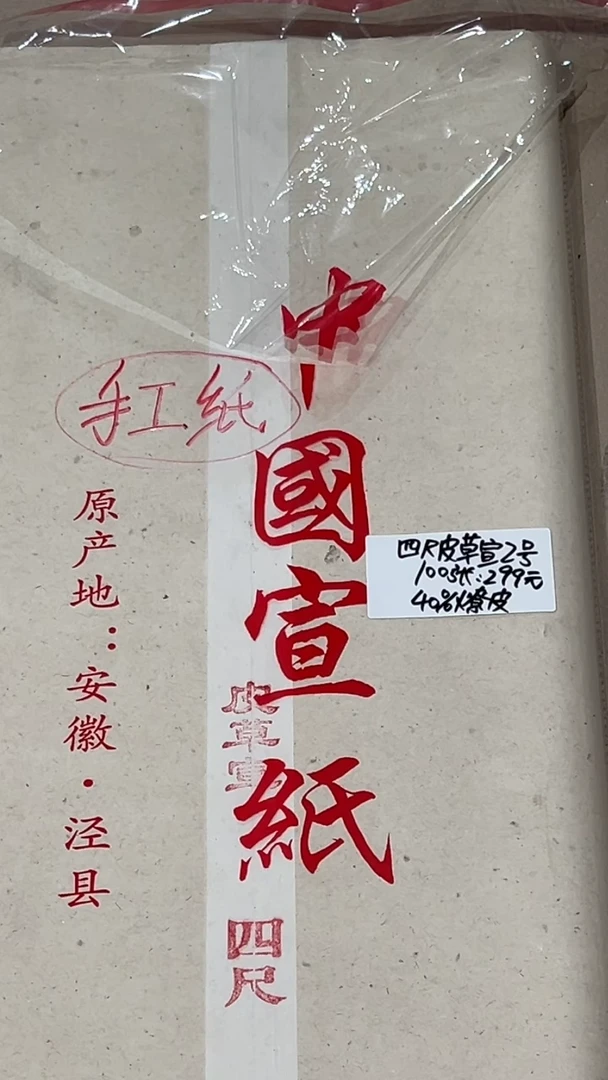 中國宣紙
手工纸
原产地：安徽·泾县
四尺皮草宣2号
100张：299元
40%燎皮
皮草宣
四尺